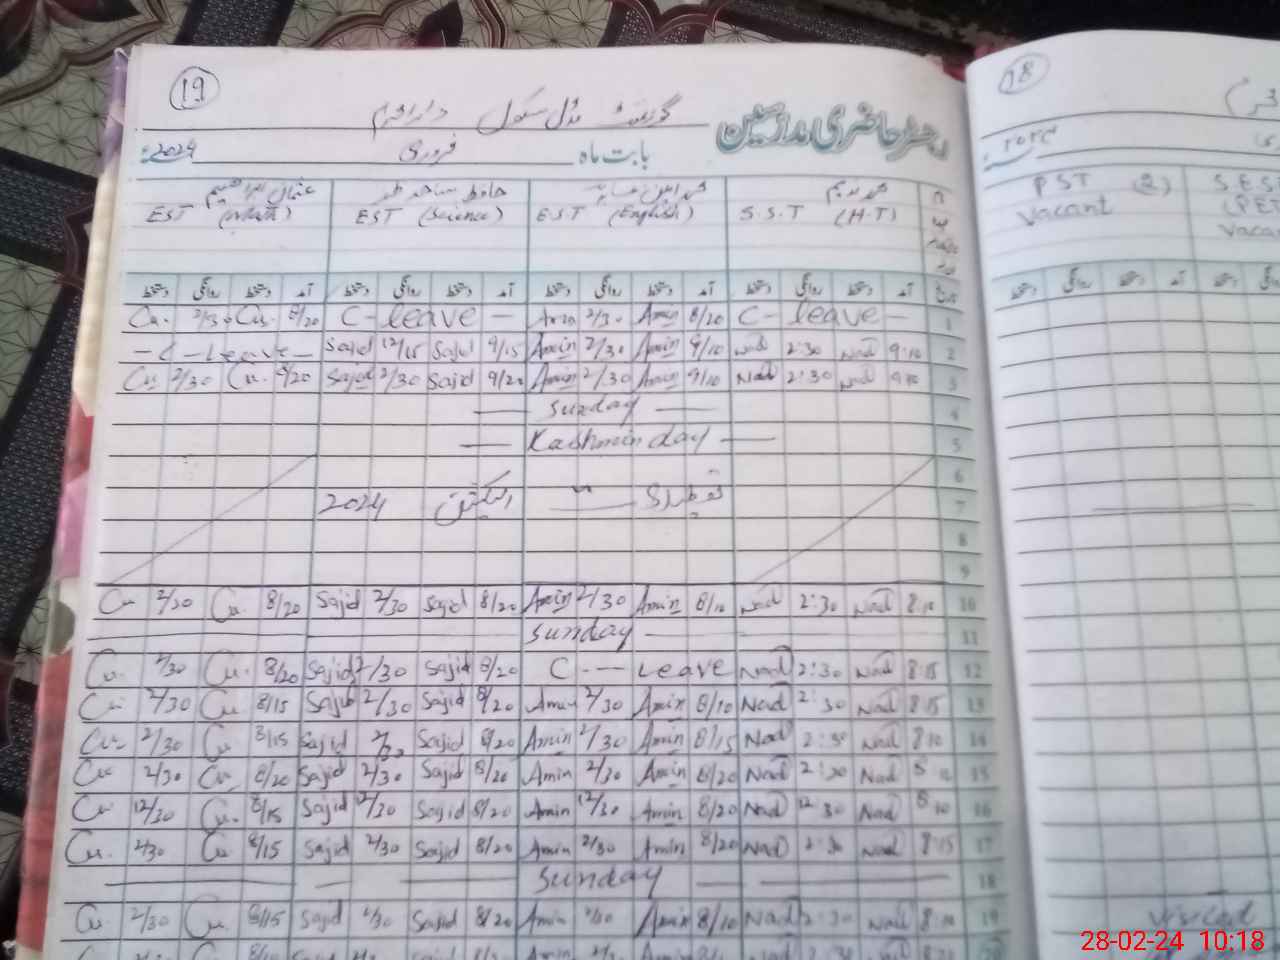 19
رجسٹر حاضری مدارسین گورنمنٹ مڈل سکول
بابت ماہ فروری 2024
S.S.T (H.T) E.S.T (English) EST (Science) EST (Math)
آمد دستخط روانگی دستخط آمد دستخط روانگی دستخط آمد دستخط روانگی دستخط آمد دستخط روانگی دستخط
Cu. 2/30 Cu. 8/20 C-leave- Amin 2/30 Amin 8/20 C-leave- 1
-C-Leave- Sajid 12/15 Sajid 9/15 Amin 2/30 Amin 9/10 Nad 2:30 Nad 9:10 2
Cu 2/30 Cu. 8/20 Sajid 2/30 Sajid 9/20 Amin 2/30 Amin 9/10 Nad 2:30 Nad 9:10 3
Sunday 4
Kashmir day 5
6
2024 الیکشن 7
8
9
Cu 2/30 Cu. 8/20 Sajid 2/30 Sajid 8/20 Amin 2/30 Amin 8/10 Nad 2:30 Nad 8:10 10
Sunday 11
Cu. 2/30 Cu. 8/20 Sajid 2/30 Sajid 8/20 C --- Leave Nad 2:30 Nad 8:15 12
Cu 2/30 Cu 8/15 Sajid 2/30 Sajid 8/20 Amin 2/30 Amin 8/10 Nad 2:30 Nad 8:15 13
Cu 2/30 Cu 8/15 Sajid 2/30 Sajid 8/20 Amin 2/30 Amin 8/15 Nad 2:30 Nad 8:10 14
Cu 2/30 Cu 8/20 Sajid 2/30 Sajid 8/20 Amin 2/30 Amin 8/20 Nad 2:30 Nad 8:10 15
Cu 12/30 Cu. 8/15 Sajid 12/30 Sajid 8/20 Amin 12/30 Amin 8/20 Nad 12:30 Nad 8:10 16
Cu. 2/30 Cu 8/15 Sajid 2/30 Sajid 8/20 Amin 2/30 Amin 8/20 Nad 2:30 Nad 8:15 17
Sunday 18
Cu. 2/30 Cu 8/15 Sajid 2/30 Sajid 8/20 Amin 2/30 Amin 8/10 Nad 2:30 Nad 8:10 19
20
18
PST (2) S.EST
Vacant (PET
Vacan
دستخط روانگی دستخط آمد دستخط روانگی
Visited
28-02-24 10:18